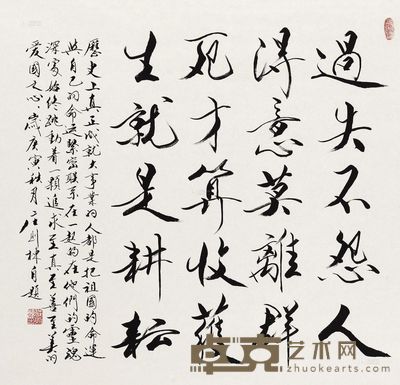 過失不怨人
得意莫離群
死才算收穫
生就是耕耘
歷史上真正成就大事業的人都是把祖國的命運
與自己的命運緊密聯系在一起的在他們的靈魂
深處始終跳動着一顆追求至真至善至美的
愛國之心歲庚寅秋月任劍楝自題
卓克艺术网
www.zhuokearts.com